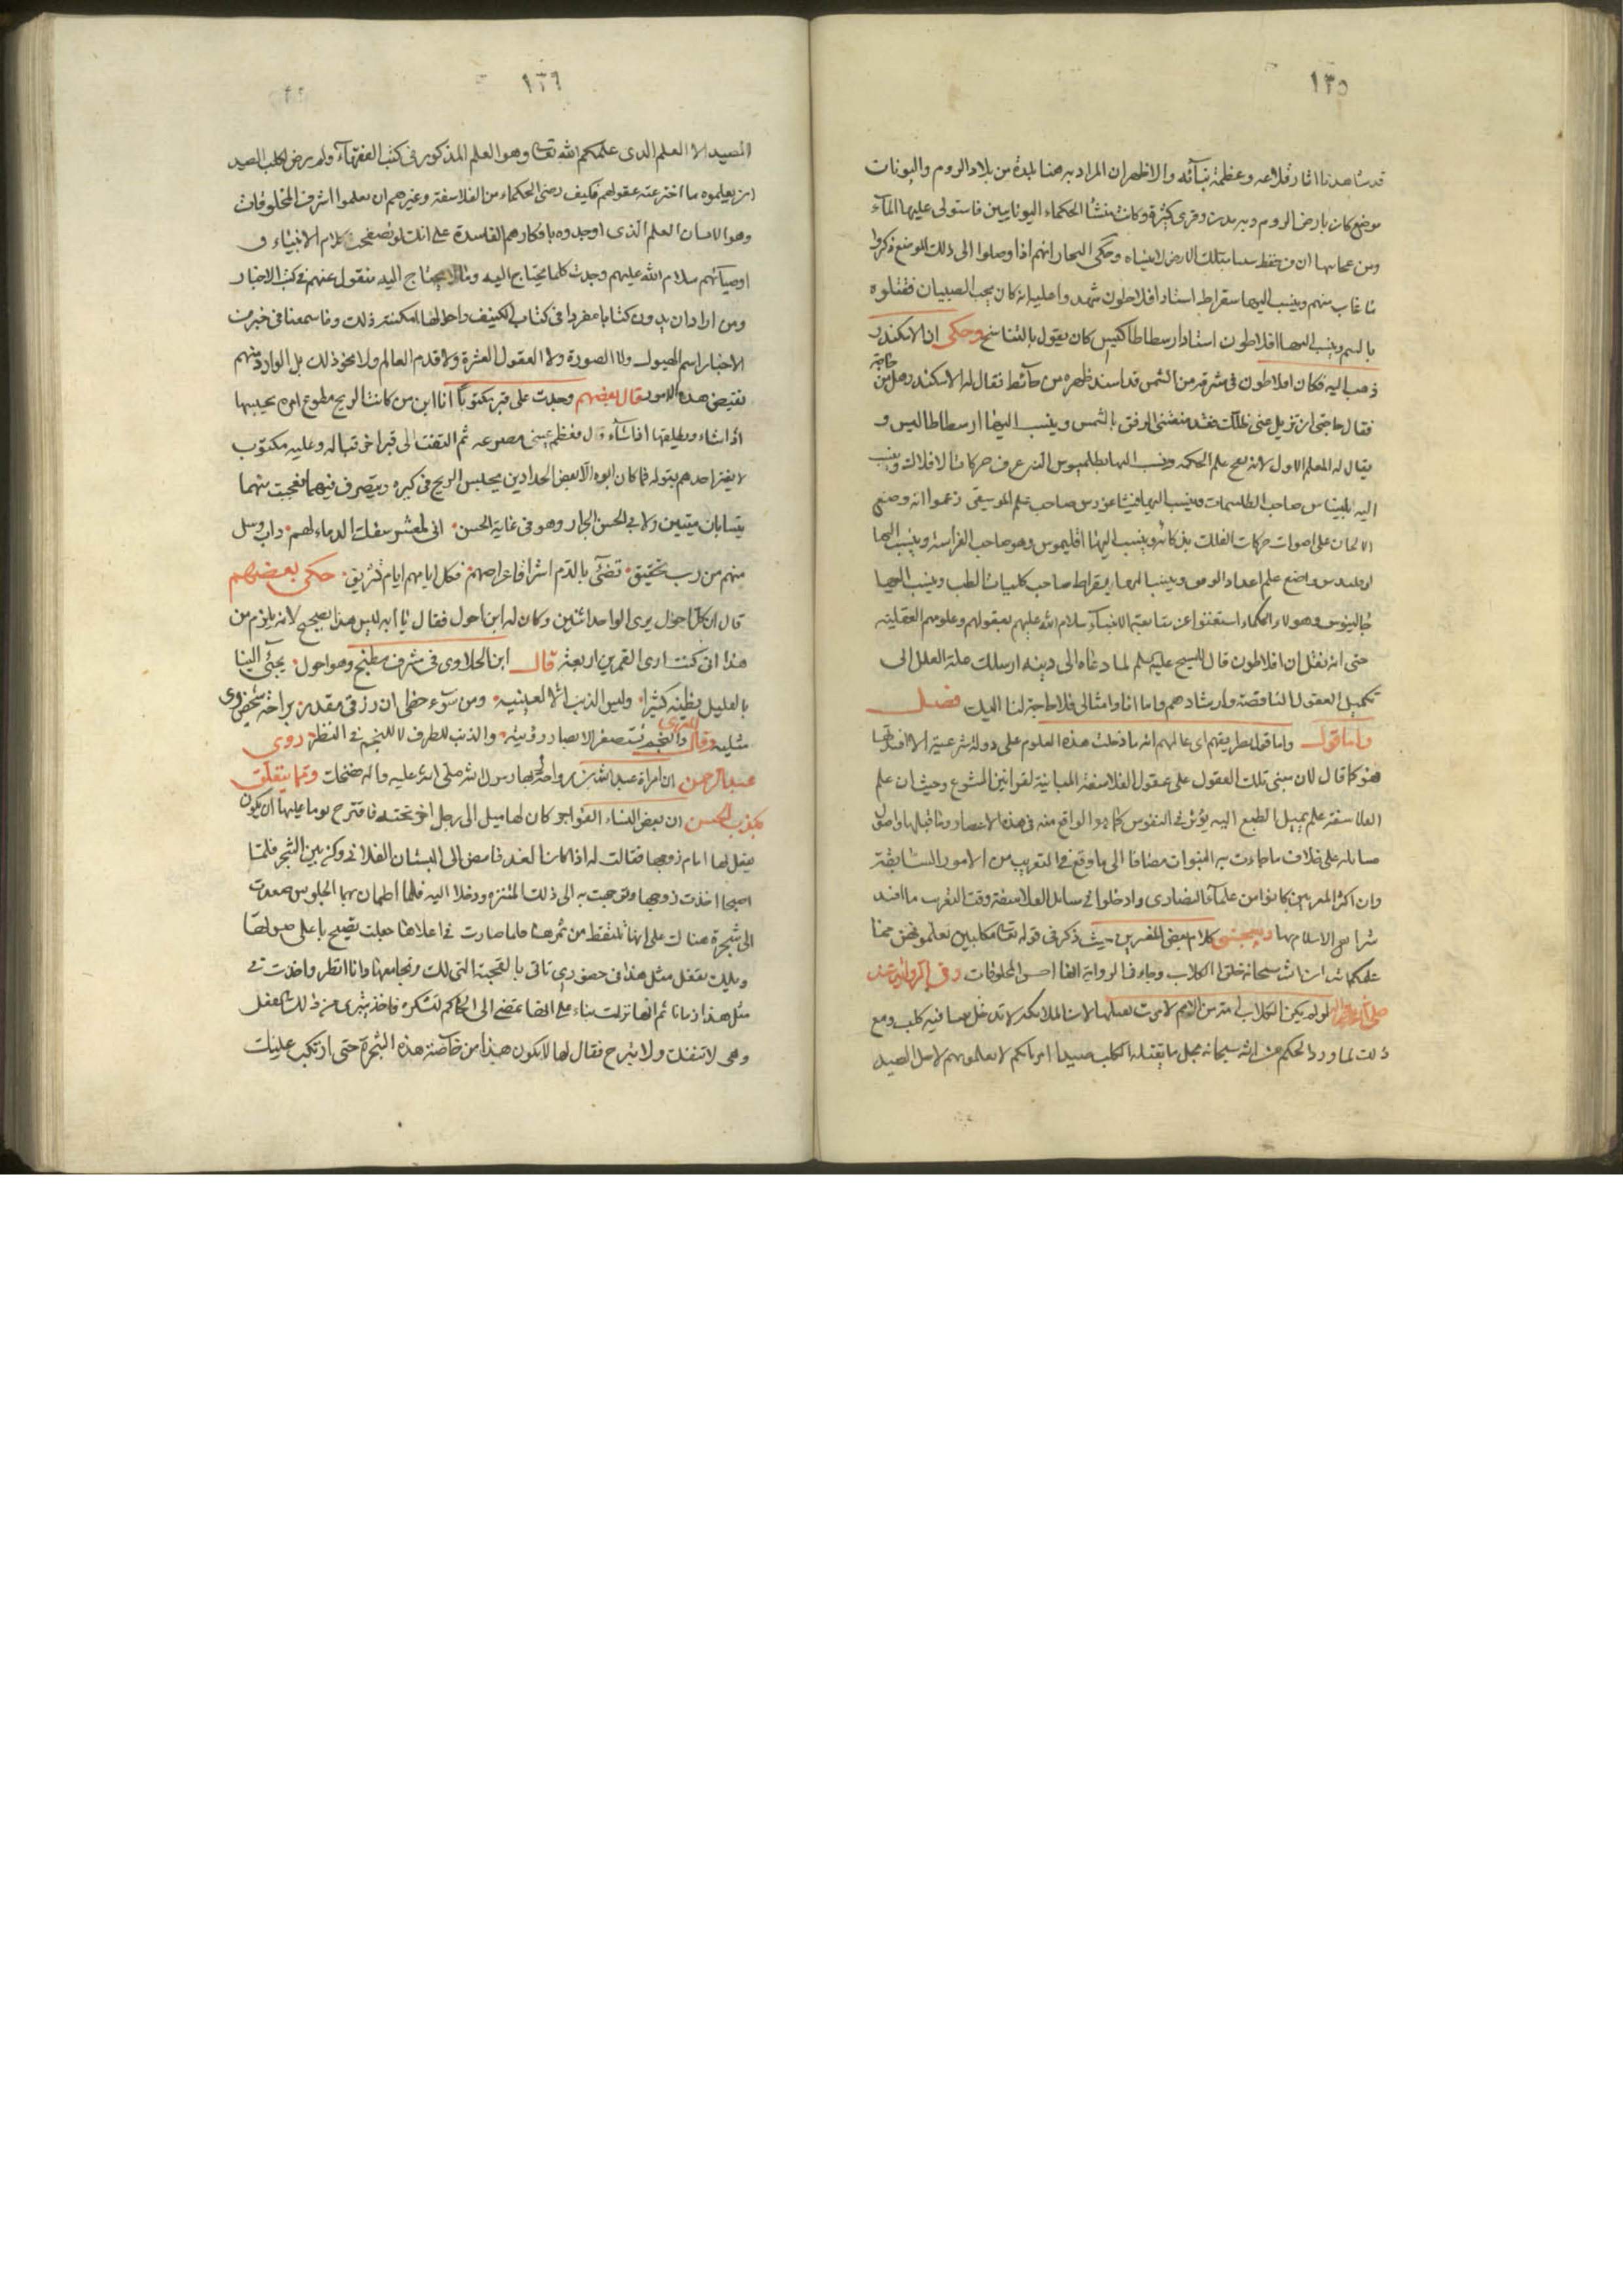 ١٣٥
قد شاهدنا اثار قلاعه وعظمة بنائه والاظهر ان المراد به هنا بلدة من بلاد الروم واليونان
موضع كان بارض الروم وبه مدن وقرى كثيرة وكانت منشأ الحكماء اليونانيين فاستولى عليها المآء
ومن عجايبها ان من حفظ شيئا بتلك الارض لا ينساه وحكى التجار انهم اذا وصلوا الى ذلك الموضع ذكروا
ما غاب منهم وينسب اليها سقراط استاد افلاطون شهد واعليه انه كان يحب الصبيان فقتلوه
بالسم وينسب اليها افلاطون استاد ارسطاطاليس كان يقول بالتناسخ وحكى ان الاسكندر
ذهب اليه فكان افلاطون في مشرقة من الشمس قد اسند ظهره من حآئط فقال له الاسكندر هل من حاجة
فقال حاجتى ان تزيل عنى ظلك فقد منعتنى الرفق بالشمس وينسب اليها ارسطاطاليس و
يقال له المعلم الاول لانه نقح علم الحكمة وينسب اليها بطلميوس الذى عرف حركات الافلاك وينسب
اليه بليناس صاحب الطلسمات وينسب اليها فيثاغورس صاحب علم الموسيقى زعموا انه وضع
الالحان على اصوات حركات الفلك بذكائه وينسب اليها اقليموس وهو صاحب الفراسة وينسب اليها
اوقليدس واضع علم اعداد الوفق وينسب اليها بقراط صاحب كليات الطب وينسب اليها
جالينوس وهولاء الحكماء استغنوا عن متابعة الانبيآء سلام الله عليهم بعقولهم وعلومهم العقلية
حتى انه نقل ان افلاطون قال للمسيح عليه السلم لما دعاه الى دينه ارسلك علة العلل الى
تكميل العقول الناقصة وارشادهم واما انا وامثالى فلا حاجة لنا اليك فصل
واما قول واما قول طريقهم اى عالمهم انه ما دخلت هذه العلوم على دولة شرعية الا افسدتها
فهو كما قال لان مبنى تلك العقول على عقول الفلاسفة المباينة لقوانين الشرع وحيث ان علم
الفلاسفة علم يميل الطبع اليه يؤثر في النفوس كما هو الواقع منه في هذه الاعصار وما قبلها واصول
مسائله على خلاف ما جاءت به النبوات مضافا الى ما وقع في التعريب من الامور السابقة
وان اكثر المعربين كانوا من علمآء النصارى وادخلوا في مسائل الفلاسفة وقت التعريب ما افسد
شرايع الاسلام بها ويعجبنى كلام بعض المفسرين حيث ذكر في قوله تعا مكلبين تعلمونهن مما
علمكم الله ان الله سبحانه خلق الكلاب وجاء في الرواية انها اخس المخلوقات وفى الرواية عنه
صلى الله عليه واله لو لم يكن الكلاب امة من الامم لامرت بقتلها لان الملائكة لا تدخل بيتا فيه كلب ومع
ذلك لما ورد الحكم من الله سبحانه بحل ما يقتله الكلب صيدا امر بانكم لا تعلمونهم لاجل الصيد
١٣٦
المصيد الا العلم الذى علمكم الله تعا وهو العلم المذكور في كتب الفقهآء ولم يرض لكلب الصيد
ان يعلموه ما اخترعته عقولهم فكيف رضى الحكماء من الفلاسفة وغيرهم ان يعلموا اشرف المخلوقات
وهو الانسان العلم الذى اوجدوه بافكارهم الفاسدة على انك لو تصفحت كلام الانبياء و
اوصيآئهم سلام الله عليهم وجدت كلما يحتاج اليه وما لا يحتاج اليه منقول عنهم في كتب الاخبار
ومن اراد ان يدون كتابا مفردا في كتاب الكنيف واحواله لامكنه ذلك وما سمعنا في خبر من
الاخبار اسم الهيولى ولا الصورة ولا العقول العشرة ولا قدم العالم ولا نحو ذلك بل الوارد منهم
نقيض هذه الامور قال بعضهم وجدت على قبر مكتوبا انا ابن من كانت الريح مطوع امره يحبسها
اذا شاء ويطلقها اذا شآء قال فعظم في عينى مصرعه ثم التفت الى قبر اخر قباله وعليه مكتوب
لا يغتر احدهم بقوله فما كان ابوه الا بعض الحدادين يحبس الريح في كيره ويتصرف فيها فعجبت منهما
يتسابان ميتين ولابى الحسن الجزار وهو في غاية الحسن انى لمعشر سفك الدماء لهم داب وسل
منهم من رب تحقيق تضئ بالدم اشراقا عراصهم فكل ايامهم ايام تشريق حكى بعضهم
قال ان كل احول يرى الواحد اثنين وكان له ابن احول فقال يا ابه ليس هذا بصحيح لانه يلزم من
هذا انى كنت ارى القمرين اربعة قال ابن الحلاوى في مشرف مطبخ وهو احول يجئ الينا
بالقليل يظنه كثيرا وليس الذنب الا لعينيه ومن سوء حظى ان رزقى مقدر براحة شخص يرى
مثليه وقال المعرى والنجم تستصغر الابصار رؤيته والذنب للطرف لا للنجم في النظر روى
عبد الرحمن ان امراة عبد الله بن رواحة بها رسول الله صلى الله عليه واله ضحك ومما يتعلق
بكذب الحس ان بعض النساء الفواجر كان لها ميل الى رجل اخر تحبه فاقترح يوما عليها ان يكون
يفعل بها امام زوجها فقالت له اذا كان الغد فامض الى البستان الفلانى وكن بين الشجر فلما
اصبحا اخذت زوجها وتوجهت به الى ذلك المتنزه ودخلا اليه فلما اطمان بهما الجلوس صعدت
الى شجرة هناك على انها تلتقط من ثمرها فلما صارت في اعلاها جعلت تصيح باعلى صوتها
ويلك تفعل مثل هذا في حضورى تاتى بالقحبة التى لك وتجامعها وانا انظر واخذت في
مثل هذا زمانا ثم انها نزلت بناء على انها تمضى الى الحاكم لتشكره فاخذ يتبرى من ذلك الفعل
وهى لا تنفك ولا يبرح فقال لها لا يكون هذا من خاصة هذه الشجرة حتى ارتكب عليك